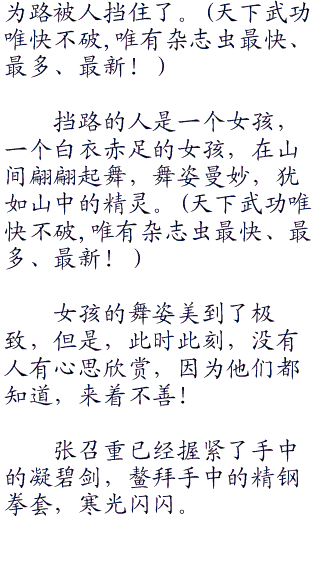 为路被人挡住了。(天下武功
唯快不破,唯有杂志虫最快、
最多、最新！)
挡路的人是一个女孩，
一个白衣赤足的女孩，在山
间翩翩起舞，舞姿曼妙，犹
如山中的精灵。(天下武功唯
快不破,唯有杂志虫最快、最
多、最新！)
女孩的舞姿美到了极
致，但是，此时此刻，没有
人有心思欣赏，因为他们都
知道，来着不善！
张召重已经握紧了手中
的凝碧剑，鳌拜手中的精钢
拳套，寒光闪闪。